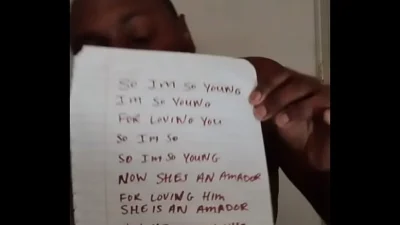 SO IM SO YOUNG
IM SO YOUNG
FOR LOVING YOU
SO IM SO
SO IM SO YOUNG
NOW SHES AN AMADOR
FOR LOVING HIM
SHE IS AN AMADOR